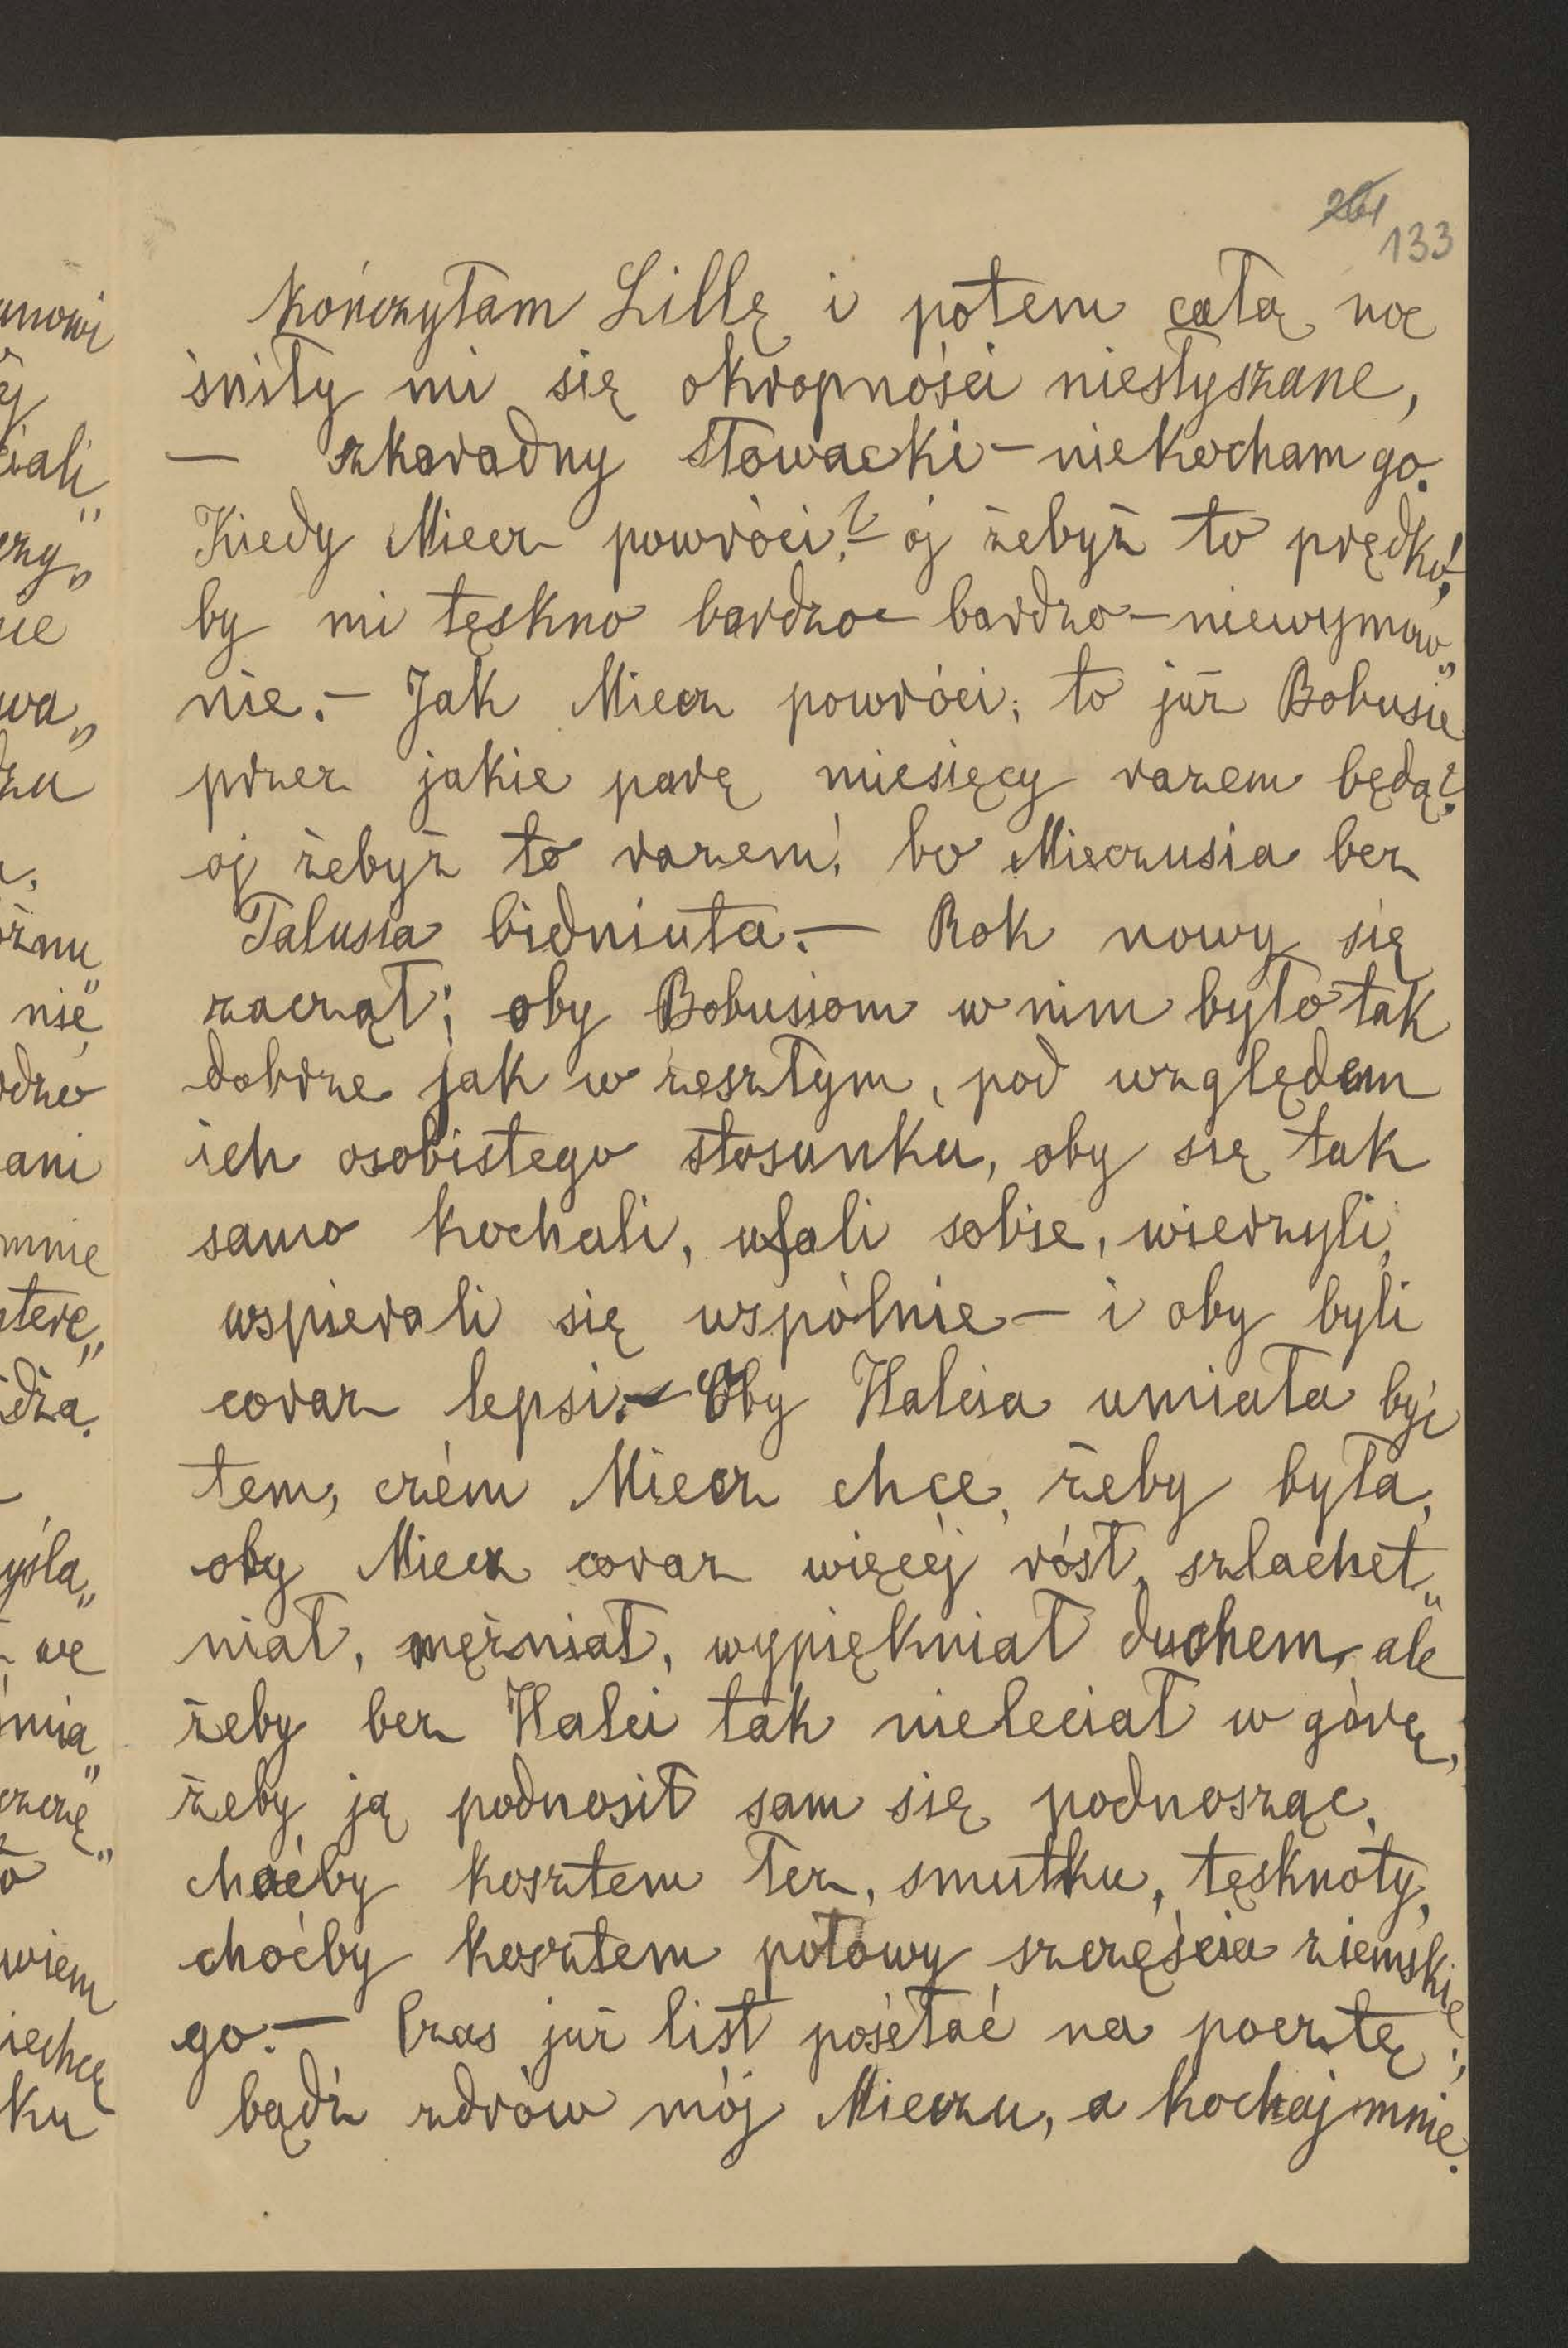 261
133
kończyłam Lillę i potem całą noc
śniły mi się okropności niesłyszane,
— szkaradny Słowacki — niekocham go.
Kiedy Miecz powróci? — oj żebyż to prędko!,
by mi tęskno bardzo — bardzo — niewymow„
nie. — Jak Miecz powróci, to już Bobusie
przez jakie parę miesięcy razem będą?
oj żebyż to razem! bo Mieczusia bez
Talusia bidniuta. — Rok nowy się
zaczął; oby Bobusiom w nim było tak
dobrze jak w zeszłym, pod względem
ich osobistego stosunku, oby się tak
samo kochali, ufali sobie, wierzyli,
wspierali się wspólnie — i oby byli
coraz lepsi. — Oby Halcia umiała być
tem, czém Miecz chce, żeby była,
oby Miecz coraz więcéj rósł, szlachet„
niał, mężniał, wypiękniał duchem, ale
żeby bez Halci tak nieleciał w górę,
żeby ją podnosił sam się podnosząc,
choćby kosztem łez, smutku, tęsknoty,
choćby kosztem połowy szczęścia ziemskie„
go. — Czas już list posełać na pocztę;
bądź zdrów mój Mieczu, a kochaj mnie.